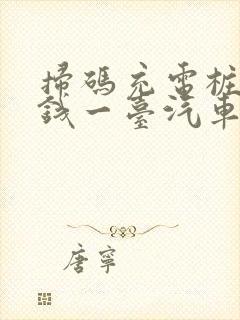 掃碼充電桩
錢一臺汽車
唐寧